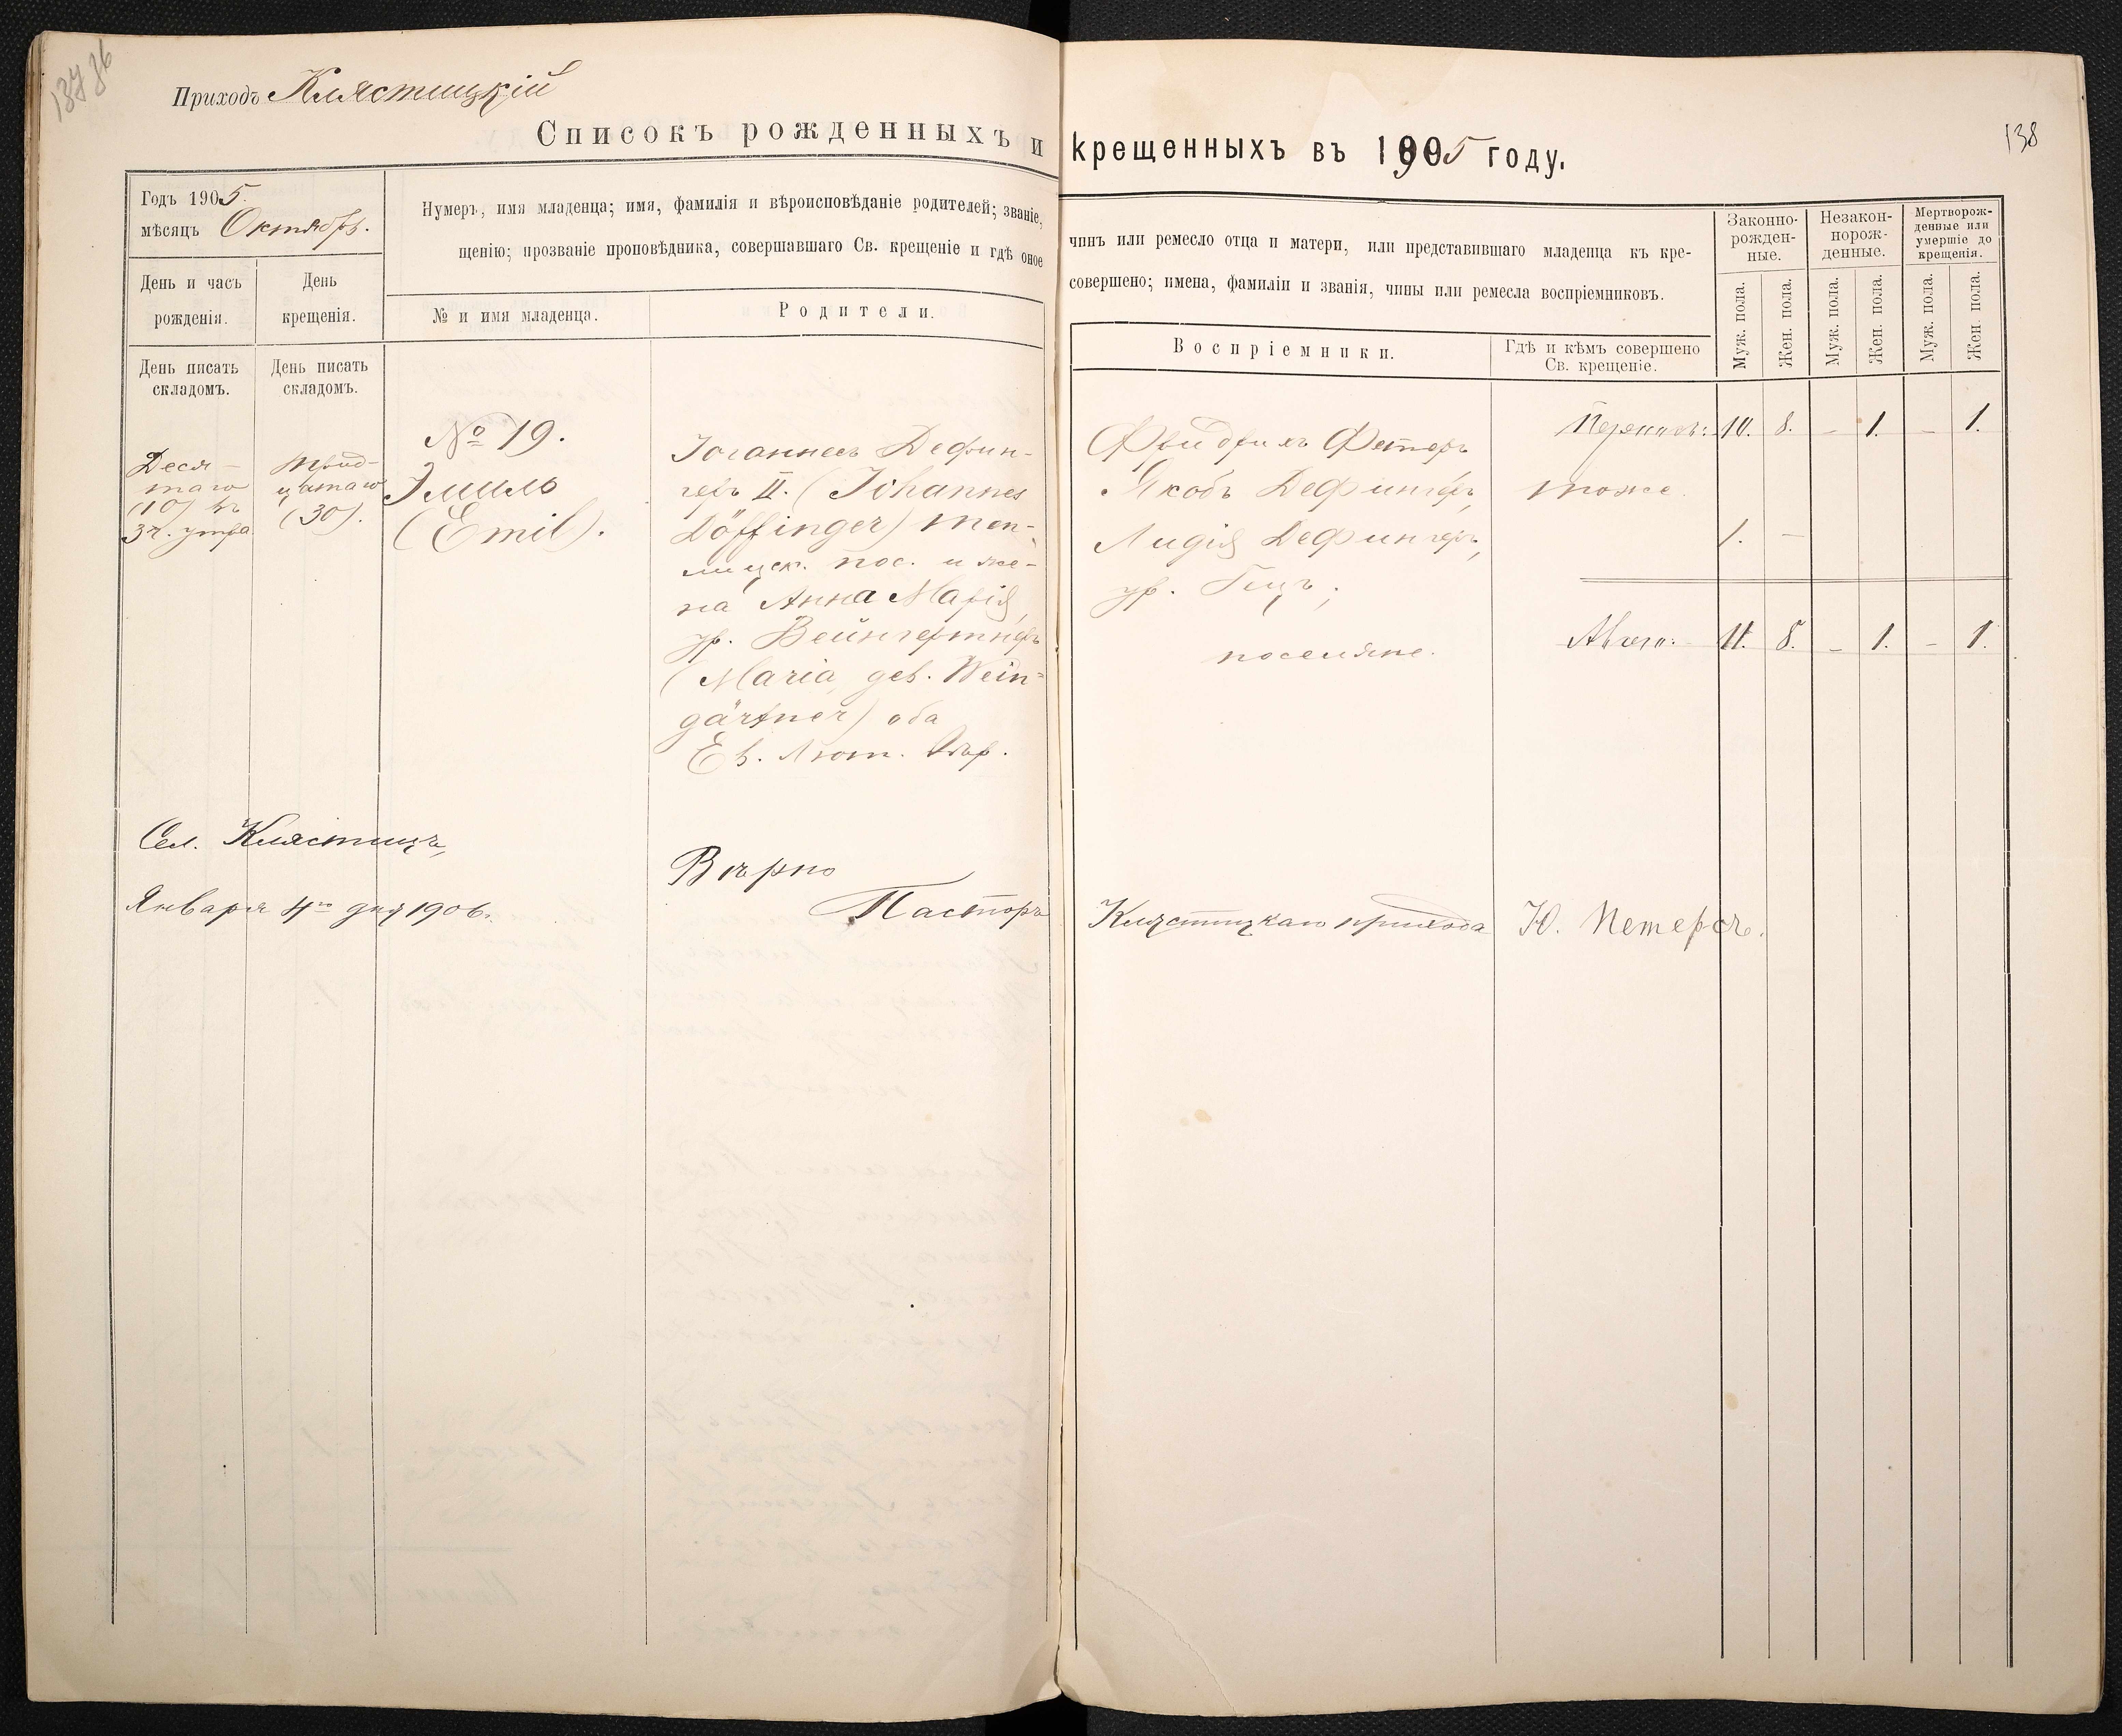 137 36
Приходъ Клястицкій
Списокъ рожденныхъ и крещенныхъ въ 1905 году.
138
Годъ 1905.
мѣсяцъ Октябрь.
День и часъ
рожденія.
День
крещенія.
Нумеръ, имя младенца; имя, фамилія и вѣроисповѣданіе родителей; званіе,
щенію; прозваніе проповѣдника, совершавшаго Св. крещеніе и гдѣ оное
№ и имя младенца.
Родители.
День писать
складомъ.
День писать
складомъ.
чинъ или ремесло отца и матери, или представившаго младенца къ кре-
совершено; имена, фамиліи и званія, чины или ремесла воспріемниковъ.
Воспріемники.
Гдѣ и кѣмъ совершено
Св. крещеніе.
Законно-
рожден-
ные.
Незакон-
норож-
денные.
Мертворож-
денные или
умершіе до
крещенія.
Муж. пола.
Жен. пола.
Муж. пола.
Жен. пола.
Муж. пола.
Жен. пола.
Деся-
таго
(10) въ
3 ч. утра
Трид-
цатаго
(30).
№ 19.
Эмиль
(Emil).
Іоганнесъ Дефин-
геръ II. (Johannes
Döffinger) тен-
лицк. пос. и же-
на Анна Марія,
ур. Вейнгертнеръ
(Maria, geb. Wein-
gärtner) оба
Ев. Лют. Вѣр.
Фридрихъ Фетеръ
Якобъ Дефингеръ,
Лидія Дефингеръ,
ур. Гецъ;
поселяне.
Переносъ: 10. 8. – 1. – 1.
тоже.
1. –
Всего: 11. 8. – 1. – 1.
Сел. Клястицъ,
Января 4го дня 1906 г.
Вѣрно
Пасторъ Клястицкаго прихода Ю. Петерсъ.